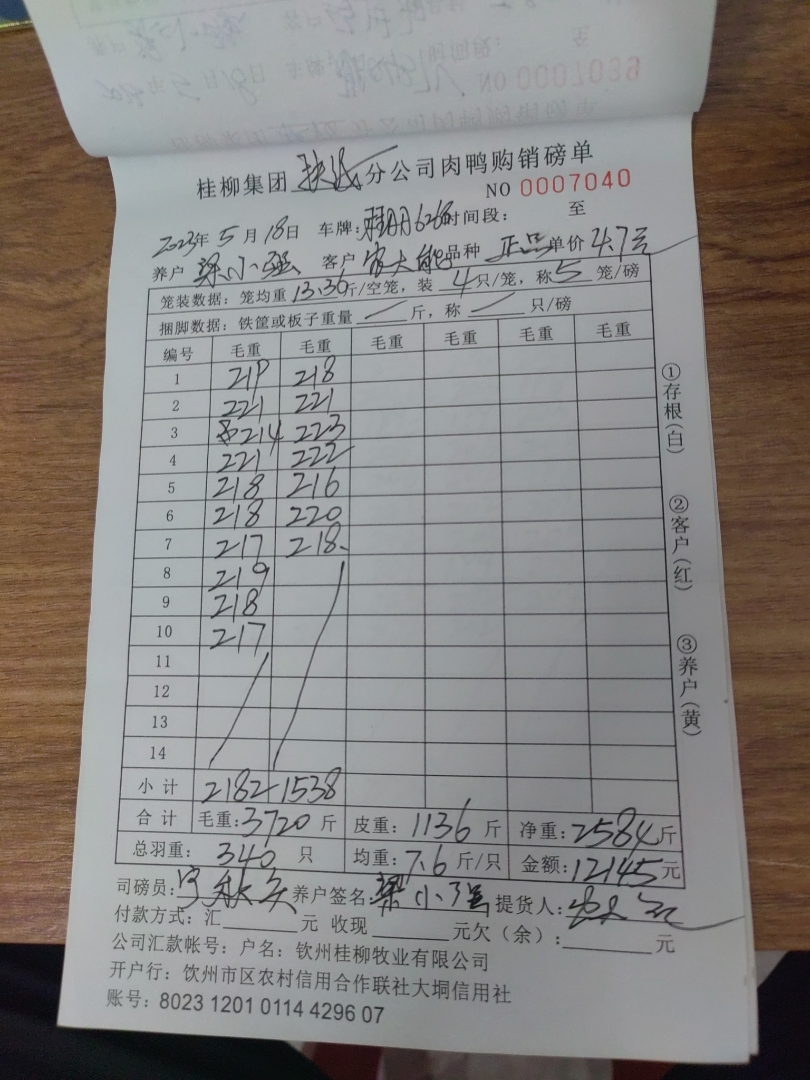 桂柳集团 分公司肉鸭购销磅单
NO 0007040
2023年5月18日 车牌: 时间段: 至
养户 梁小强 客户 品种 正品 单价 4.7元
笼装数据: 笼均重 13.36斤/空笼, 装 4只/笼, 称 5 笼/磅
捆脚数据: 铁筐或板子重量 / 斤, 称 / 只/磅
编号 毛重 毛重 毛重 毛重 毛重 毛重
1 219 218
2 221 221
3 214 223
4 221 222
5 218 216
6 218 220
7 217 218
8 219
9 218
10 217
11
12
13
14
小计 2182 1538
合计 毛重:3720 斤 皮重: 1136 斤 净重:2584斤
总羽重: 340 只 均重:7.6 斤/只 金额:12145元
司磅员: 养户签名 梁小强 提货人:
付款方式: 汇 元 收现 元欠(余): 元
公司汇款帐号: 户名: 钦州桂柳牧业有限公司
开户行: 饮州市区农村信用合作联社大垌信用社
账号: 8023 1201 0114 4296 07
①存根(白)
②客户(红)
③养户(黄)